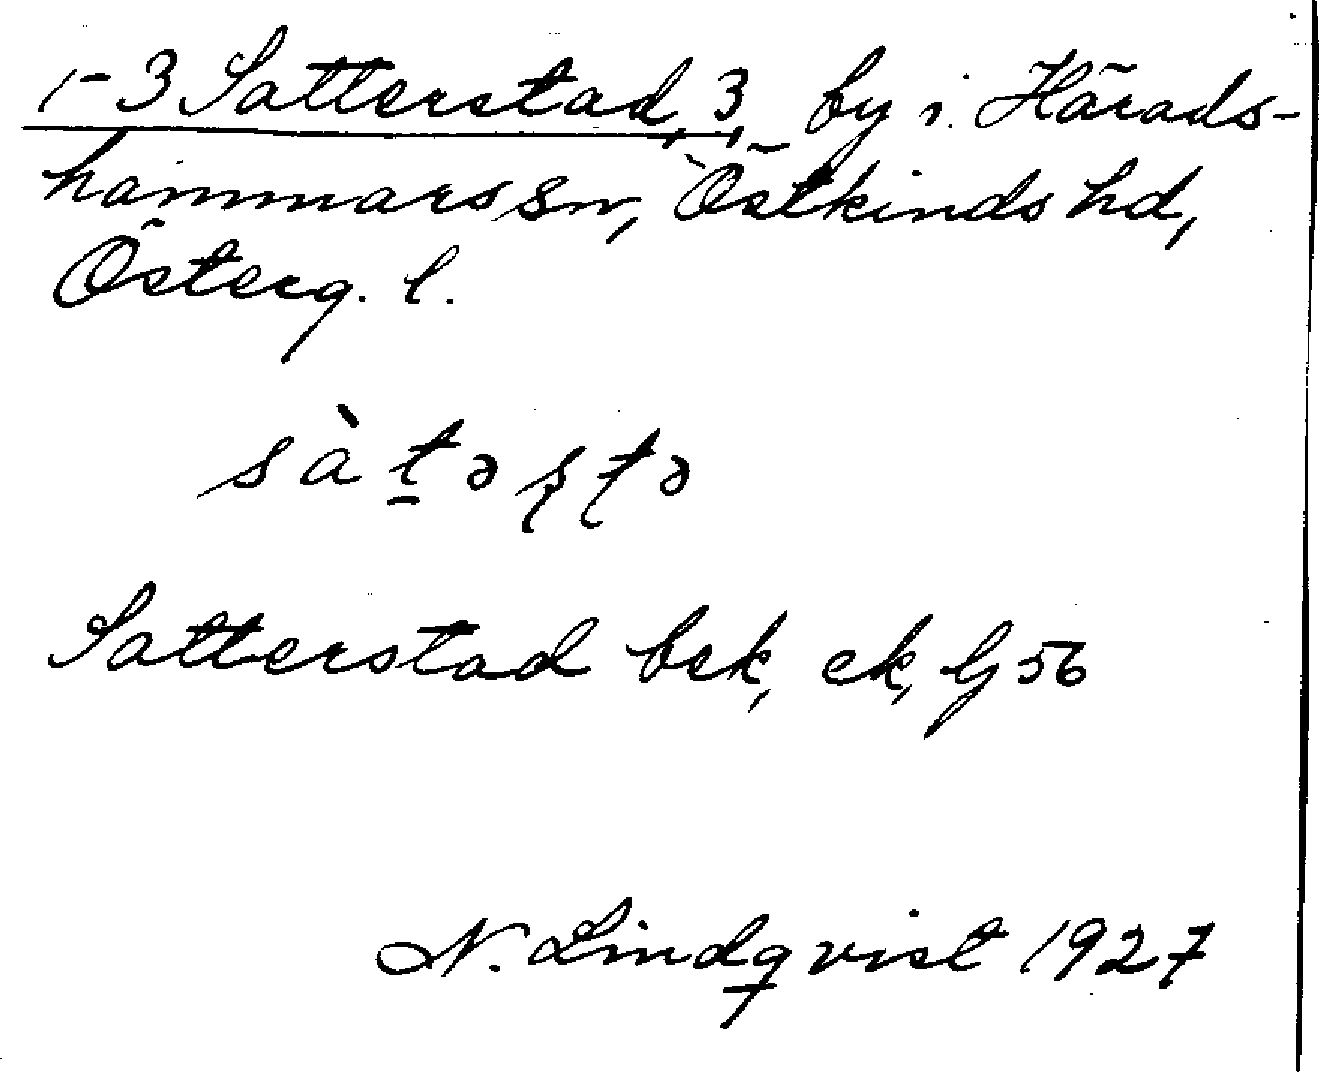 1-3 Satterstad, 3, by i. Härads-
hammars sn, Östkinds hd,
Österg. l.
sàt̠əʂʈə
Satterstad bek, ek, Gj 56
N. Lindqvist 1927